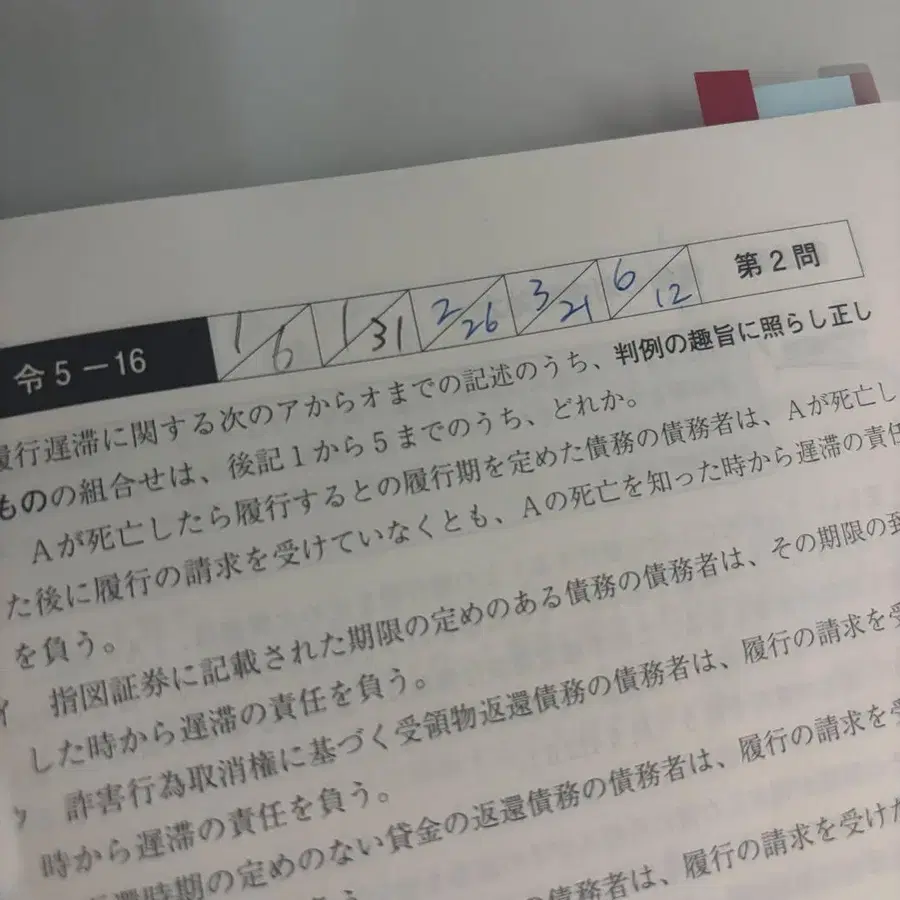 令5-16 1/6 1/31 2/26 3/21 6/12 第2問
履行遅滞に関する次のアからオまでの記述のうち、判例の趣旨に照らし正し
ものの組合せは、後記1から5までのうち、どれか。
Aが死亡したら履行するとの履行期を定めた債務の債務者は、Aが死亡し
た後に履行の請求を受けていなくとも、Aの死亡を知った時から遅滞の責任
を負う。
イ 指図証券に記載された期限の定めのある債務の債務者は、その期限の到
した時から遅滞の責任を負う。
ウ 詐害行為取消権に基づく受領物返還債務の債務者は、履行の請求を受
時から遅滞の責任を負う。
返還時期の定めのない貸金の返還債務の債務者は、履行の請求を受
債務者は、履行の請求を受けた